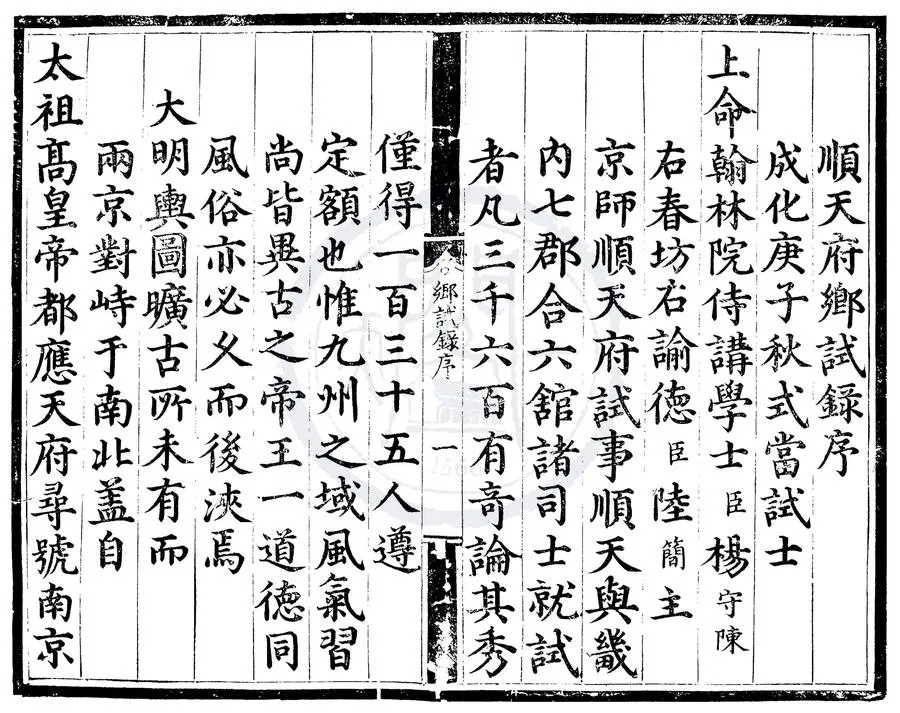 順天府鄉試錄序
成化庚子秋式當試士
上命翰林院侍講學士臣楊守陳
右春坊右諭德臣陸簡主
京師順天府試事順天與畿
内七郡合六舘諸司士就試
者凡三千六百有奇論其秀
鄉試錄序
一
僅得一百三十五人遵
定額也惟九州之域風氣習
尚皆異古之帝王一道德同
風俗亦必久而後浹焉
大明輿圖曠古所未有而
兩京對峙于南北盖自
太祖髙皇帝都應天府尋號南京